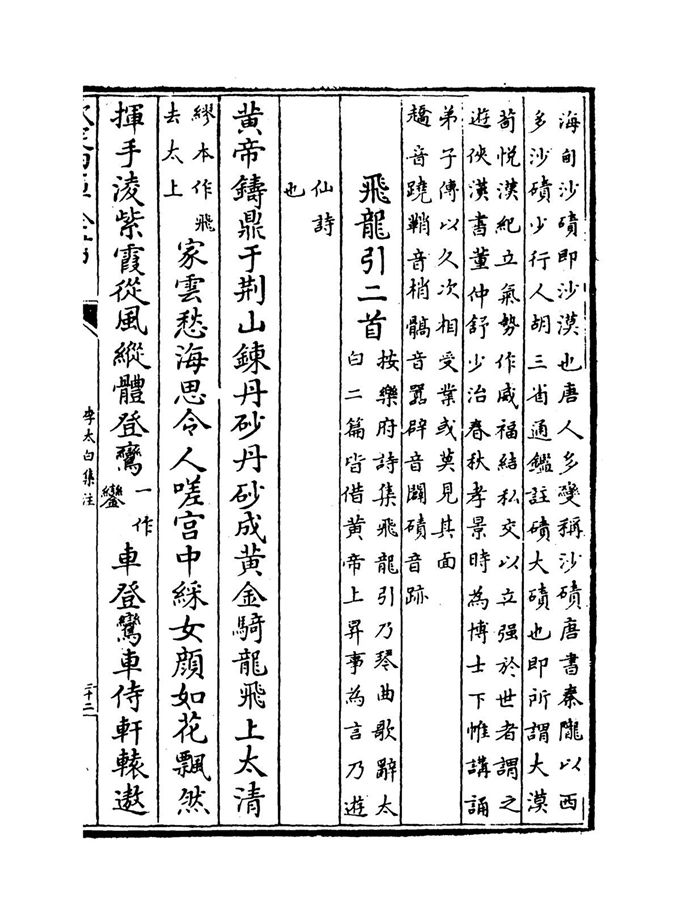 海甸沙磧即沙漠也唐人多變稱沙磧唐書秦隴以西
多沙磧少行人胡三省通鑑註磧大磧也即所謂大漠
荀悅漢紀立氣勢作威福結私交以立强於世者謂之
遊俠漢書董仲舒少治春秋孝景時為博士下帷講誦
弟子傳以久次相受業或莫見其面
趫音蹺鞘音梢髇音嚣辟音闢磧音跡
飛龍引二首
按樂府詩集飛龍引乃琴曲歌辭太
白二篇皆借黄帝上昇事為言乃遊
仙詩
也
黄帝鑄鼎于荆山鍊丹砂丹砂成黄金騎龍飛上太清
繆本作飛
去太上
家雲愁海思令人嗟宫中綵女顔如花飄然
揮手凌紫霞從風縱體登鸞
一作
鑾
車登鸞車侍軒轅遨
李太白集注
三十二